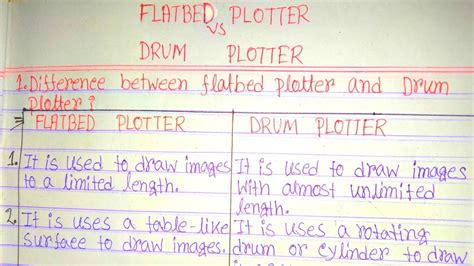 FLATBED PLOTTER
VS
DRUM PLOTTER
1. Difference between flatbed plotter and Drum
plotter?
FLATBED PLOTTER
DRUM PLOTTER
1. It is used to draw images
to a limited length.
It is used to draw images
with almost unlimited
length.
2. It is uses a table-like
surface to draw images.
It is uses a rotating
drum or cylinder to draw